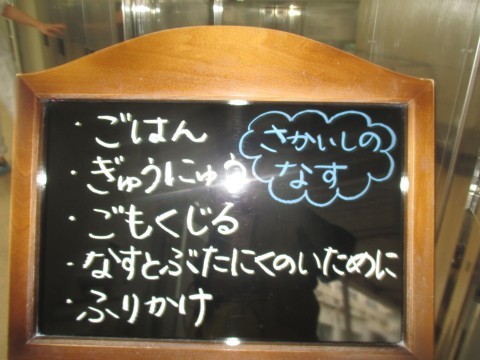 ・ごはん
・ぎゅうにゅう
・ごもくじる
・なすとぶたにくのいために
・ふりかけ
さかいしの
なす